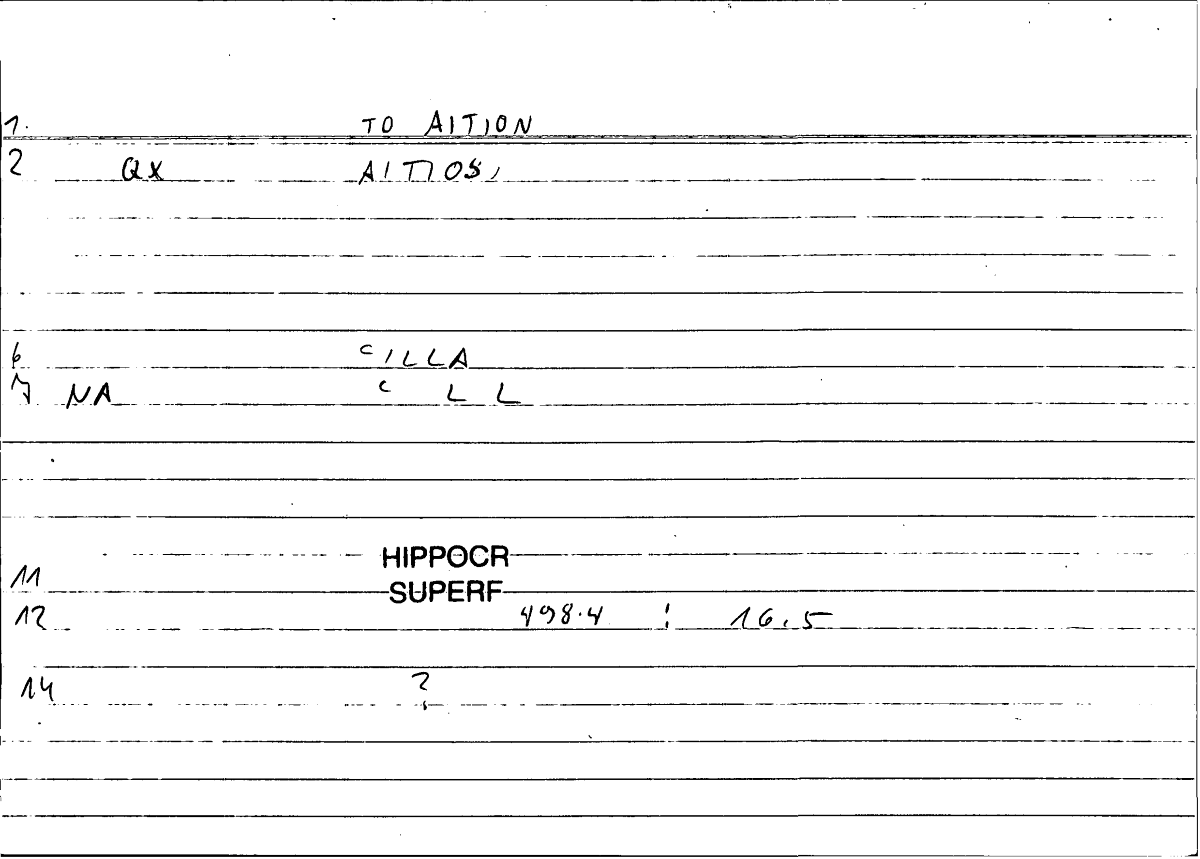 1. TO AITION
2 QX AITIOS,
6 CILLA
7 NA C L L
HIPPOCR
11 SUPERF
12 498.4 : 16.5
14 ?